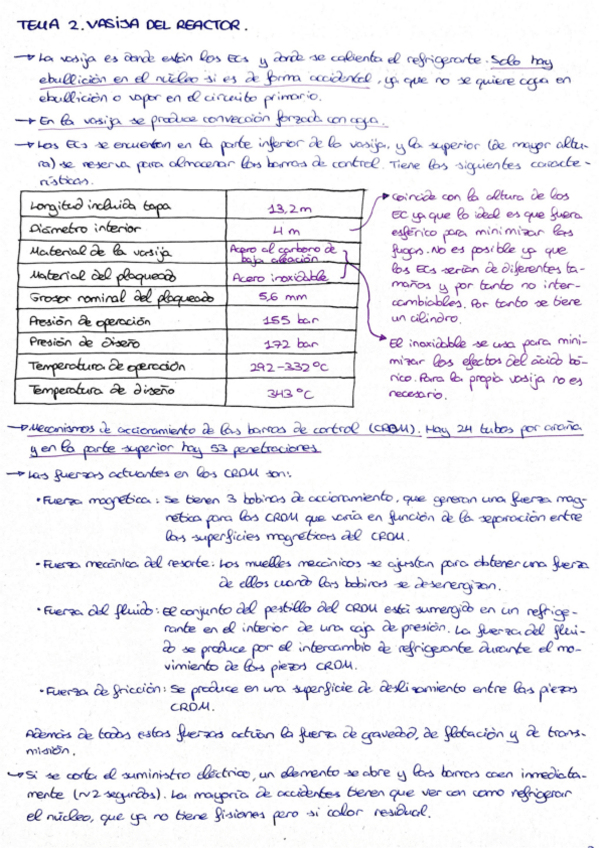 TEMA 2. VASIJA DEL REACTOR.
→ La vasija es donde están los ECs y donde se calienta el refrigerante. Solo hay
ebullición en el núcleo si es de forma accidental, ya que no se quiere agua en
ebullición o vapor en el circuito primario.
→ En la vasija se produce convección forzada con agua.
→ Los ECs se encuentran en la parte inferior de la vasija, y la superior (de mayor altu-
ra) se reserva para almacenar las barras de control. Tiene las siguientes caracte-
rísticas.
Longitud incluida tapa 13,2 m
Diámetro interior 4 m
Material de la vasija Acero al carbono de baja aleación
Material del plaqueado Acero inoxidable
Grosor nominal del plaqueado 5,6 mm
Presión de operación 155 bar
Presión de diseño 172 bar
Temperatura de operación 292-332°C
Temperatura de diseño 343°C
Coincide con la altura de los
EC ya que lo ideal es que fuera
esférico para minimizar las
fugas. No es posible ya que
los ECs serían de diferentes ta-
maños y por tanto no inter-
cambiables. Por tanto se tiene
un cilindro.
El inoxidable se usa para mini-
mizar los efectos del ácido bó-
rico. Para la propia vasija no es
necesario.
→ Mecanismos de accionamiento de las barras de control (CRDM). Hay 24 tubos por araña
y en la parte superior hay 53 penetraciones
→ Las fuerzas actuantes en los CRDM son:
• Fuerza magnética: Se tienen 3 bobinas de accionamiento, que generan una fuerza mag-
nética para los CRDM que varía en función de la separación entre
las superficies magnéticas del CRDM.
• Fuerza mecánica del resorte: Los muelles mecánicos se ajustan para obtener una fuerza
de ellos cuando las bobinas se desenergizan.
• Fuerza del fluido: El conjunto del pestillo del CRDM está sumergido en un refrige-
rante en el interior de una caja de presión. La fuerza del flui-
do se produce por el intercambio de refrigerante durante el mo-
vimiento de las piezas CRDM.
• Fuerza de fricción: Se produce en una superficie de deslizamiento entre las piezas
CRDM.
Además de todas estas fuerzas actúan la fuerza de gravedad, de flotación y de trans-
misión.
→ Si se corta el suministro eléctrico, un elemento se abre y las barras caen inmediata-
mente (~2 segundos). La mayoría de accidentes tienen que ver con como refrigerar
el núcleo, que ya no tiene fisiones pero si calor residual.